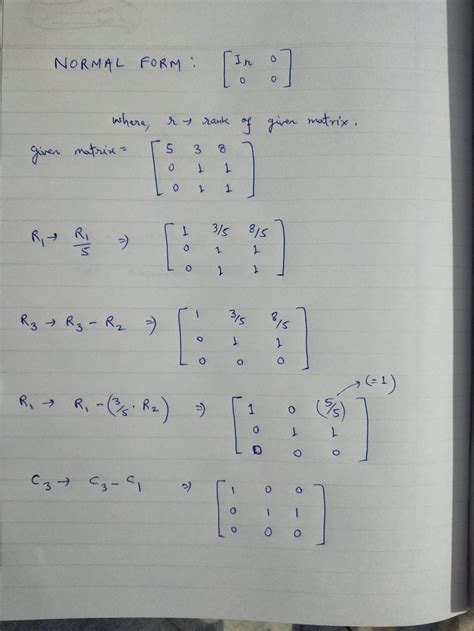 NORMAL FORM: [ Ir 0
0 0 ]
where, r → rank of given matrix.
given matrix = [ 5 3 8
0 1 1
0 1 1 ]
R1 → R1/5 ⇒ [ 1 3/5 8/5
0 1 1
0 1 1 ]
R3 → R3 - R2 ⇒ [ 1 3/5 8/5
0 1 1
0 0 0 ]
(=1)
R1 → R1 - (3/5 · R2) ⇒ [ 1 0 (5/5)
0 1 1
0 0 0 ]
C3 → C3 - C1 ⇒ [ 1 0 0
0 1 1
0 0 0 ]